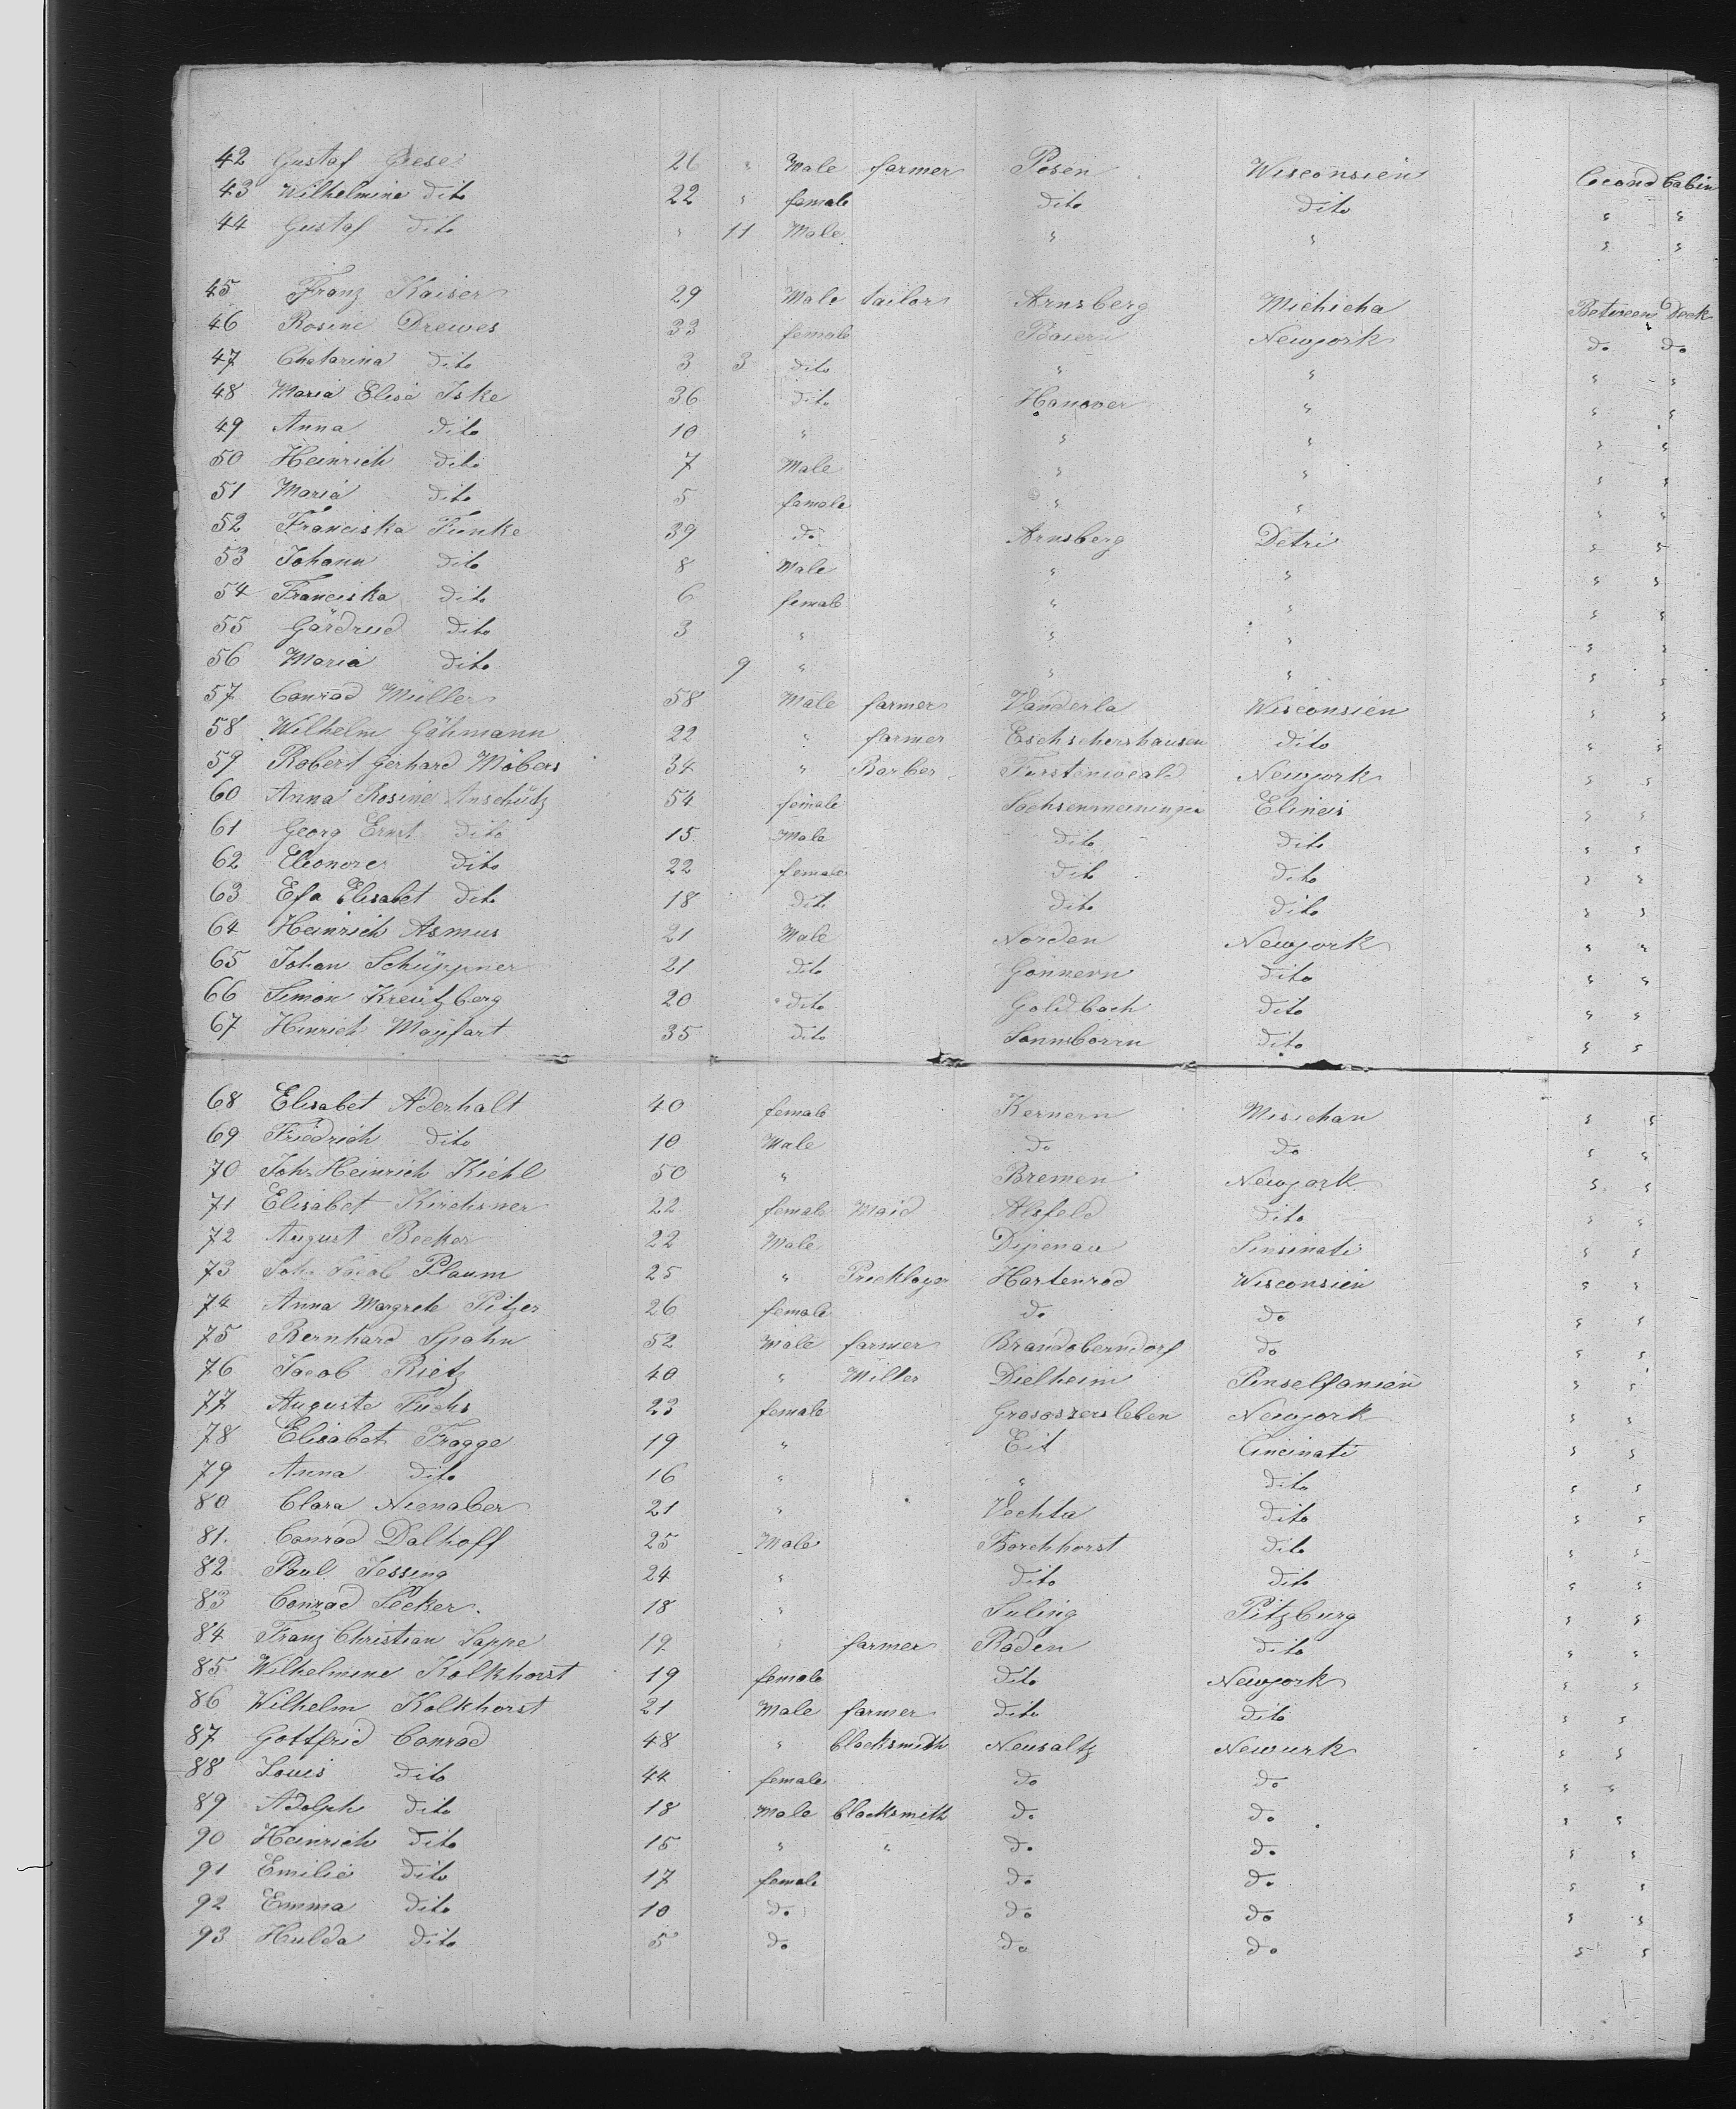 42 Gustaf Giese 26 " Male farmer Posen Wisconsien Second Cabin
43 Wilhelmine dito 22 " female dito dito " "
44 Gustaf dito " 11 Male " " " "
45 Franz Kaiser 29 Male tailor Arnsberg Michicha Between Deck
46 Rosine Drewes 33 female Baiern Newyork do do
47 Chatarina dito 3 3 dito " " " "
48 Maria Elise Iske 36 dito Hanover " " "
49 Anna dito 10 " " " " "
50 Heinrich dito 7 Male " " " "
51 Maria dito 5 famale " " " "
52 Franciska Funke 39 do Arnsberg Detri " "
53 Johann dito 8 Male " " " "
54 Franciska dito 6 female " " " "
55 Gärdrud dito 3 " " " " "
56 Maria dito 9 " " " " "
57 Conrad Müller 58 Male farmer Vanderla Wisconsien " "
58 Wilhelm Gähmann 22 " farmer Eschschershausen dito " "
59 Robert Gerhard Möbers 34 " Barber Furstenwald Newyork " "
60 Anna Rosine Anschütz 54 female Sachsenmeiningen Elineis " "
61 Georg Ernst dito 15 Male dito dito " "
62 Eleonore dito 22 female dito dito " "
63 Efa Elisabet dito 18 dito dito dito " "
64 Heinrich Asmus 21 Male Norden Newyork " "
65 Johan Schüppner 21 dito Gönnern dito " "
66 Simon Kreutzberg 20 dito Goldbach dito " "
67 Hinrich Mayfart 35 dito Sonnborrn dito " "
68 Elisabet Aderhalt 40 female Kernern Misichan " "
69 Friedrich dito 10 Male do do " "
70 Joh. Heinrich Kiehl 50 " Bremen Newyork " "
71 Elisabet Kirchsner 22 female Maid Alsfeld dito " "
72 August Becker 22 Male Dipenau Sinsinati " "
73 Joh. Jacob Plaum 25 " Pricklayer Hartenrod Wisconsien " "
74 Anna Margrete Pitzer 26 female do do " "
75 Bernhard Spahn 52 Male farmer Brandoberndorf do " "
76 Jacob Rietz 40 " Miller Dielheim Pinselfanien " "
77 Auguste Fuchs 23 female Grososzersleben Newyork " "
78 Elisabet Fragge 19 " Eit Cincinati " "
79 Anna dito 16 " " dito " "
80 Clara Niemaber 21 " Vechta dito " "
81. Conrad Dalhoff 25 Male Borchhorst dito " "
82 Paul Jessing 24 " dito dito " "
83 Conrad Secker. 18 " Suling Pitzburg " "
84 Franz Christian Sappe 19 " farmer Raden dito " "
85 Wilhelmine Kolkhorst 19 female dito Newyork " "
86 Wilhelm Kolkhorst 21 Male farmer dito dito " "
87 Gottfrid Conrad 48 " blacksmith Neusaltz Newurk " "
88 Louis dito 44 female do do " "
89 Adolph dito 18 Male blacksmith do do " "
90 Heinrich dito 15 " " do do " "
91 Emilie dito 17 female do do " "
92 Emma dito 10 do do do " "
93 Hulda dito 5 do do do " "